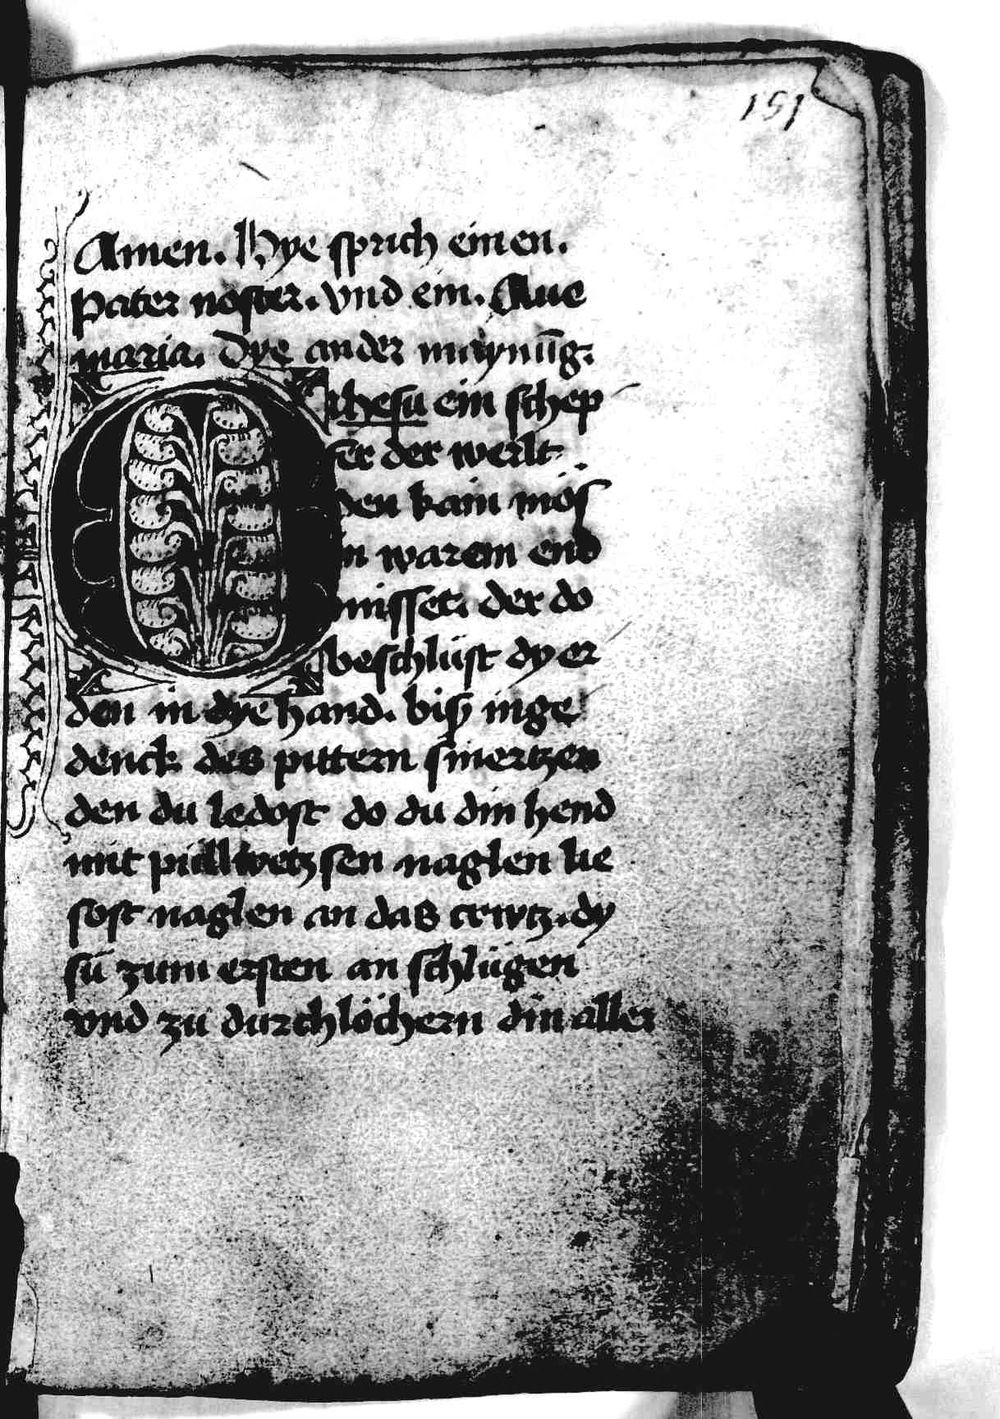 151
Amen. Hye sprich einen.
Pater noster. vnd ein. Aue
maria. Dye ander maynūg.
O ihesu ein schep
fer der werlt.
den kain mös
in warem end
misset. der do
beschlüst dy er
den in dye hand. biß inge
denck des pittern smertzen
den du ledost do du din hend
mit pülliwetzsen naglen lie
sost naglen an das crwtz. dy
sü zum ersten an schlügen
vnd zü durchlöchern din aller